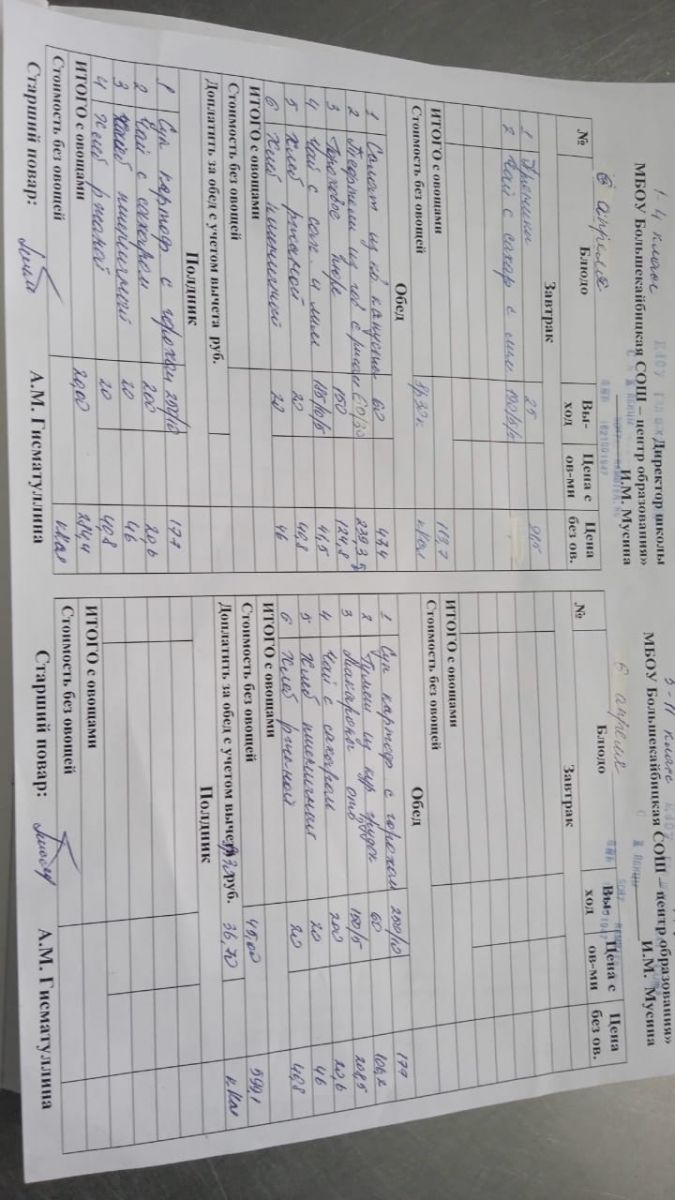 1-4 классы
Директор школы
МБОУ Большекайбицкая СОШ – центр образования»
И.М. Мусина
6 апреля
№ Блюдо Вы-ход Цена с ов-ми Цена без ов.
Завтрак
1 25 98,5
2 Чай с сахар с лим
ИТОГО с овощами 119,7
Стоимость без овощей 8р30к ккал
Обед
1 Салат из капусты 60 47,4
2 Тефтели из гов с рисом 60/30 239,3
3 Гороховое пюре 150 124,8
4 Чай с сах и лим 185/10/5 41,5
5 Хлеб ржаной 20 40,8
6 Хлеб пшеничный 20 46
ИТОГО с овощами
Стоимость без овощей
Доплатить за обед с учетом вычета руб.
Полдник
1 Суп картоф с горохом 200/10 177
2 Чай с сахаром 200 20,6
3 Хлеб пшеничный 20 46
4 Хлеб ржаной 20 40,8
ИТОГО с овощами 20,00 284,4
Стоимость без овощей ккал
Старший повар: А.М. Гисматуллина
5-11 класс
МБОУ Большекайбицкая СОШ – центр образования»
И.М. Мусина
6 апреля
№ Блюдо Вы-ход Цена с ов-ми Цена без ов.
Завтрак
ИТОГО с овощами
Стоимость без овощей
Обед
1 Суп картоф с горохом 200/10 177
2 Гуляш из кур грудок 60 106,2
3 Макароны отв 150/5 208,5
4 Чай с сахаром 200 20,6
5 Хлеб пшеничный 20 46
6 Хлеб ржаной 20 40,8
ИТОГО с овощами 45,00 599,1
Стоимость без овощей
Доплатить за обед с учетом вычета руб. 36,70 ккал
Полдник
ИТОГО с овощами
Стоимость без овощей
Старший повар: А.М. Гисматуллина